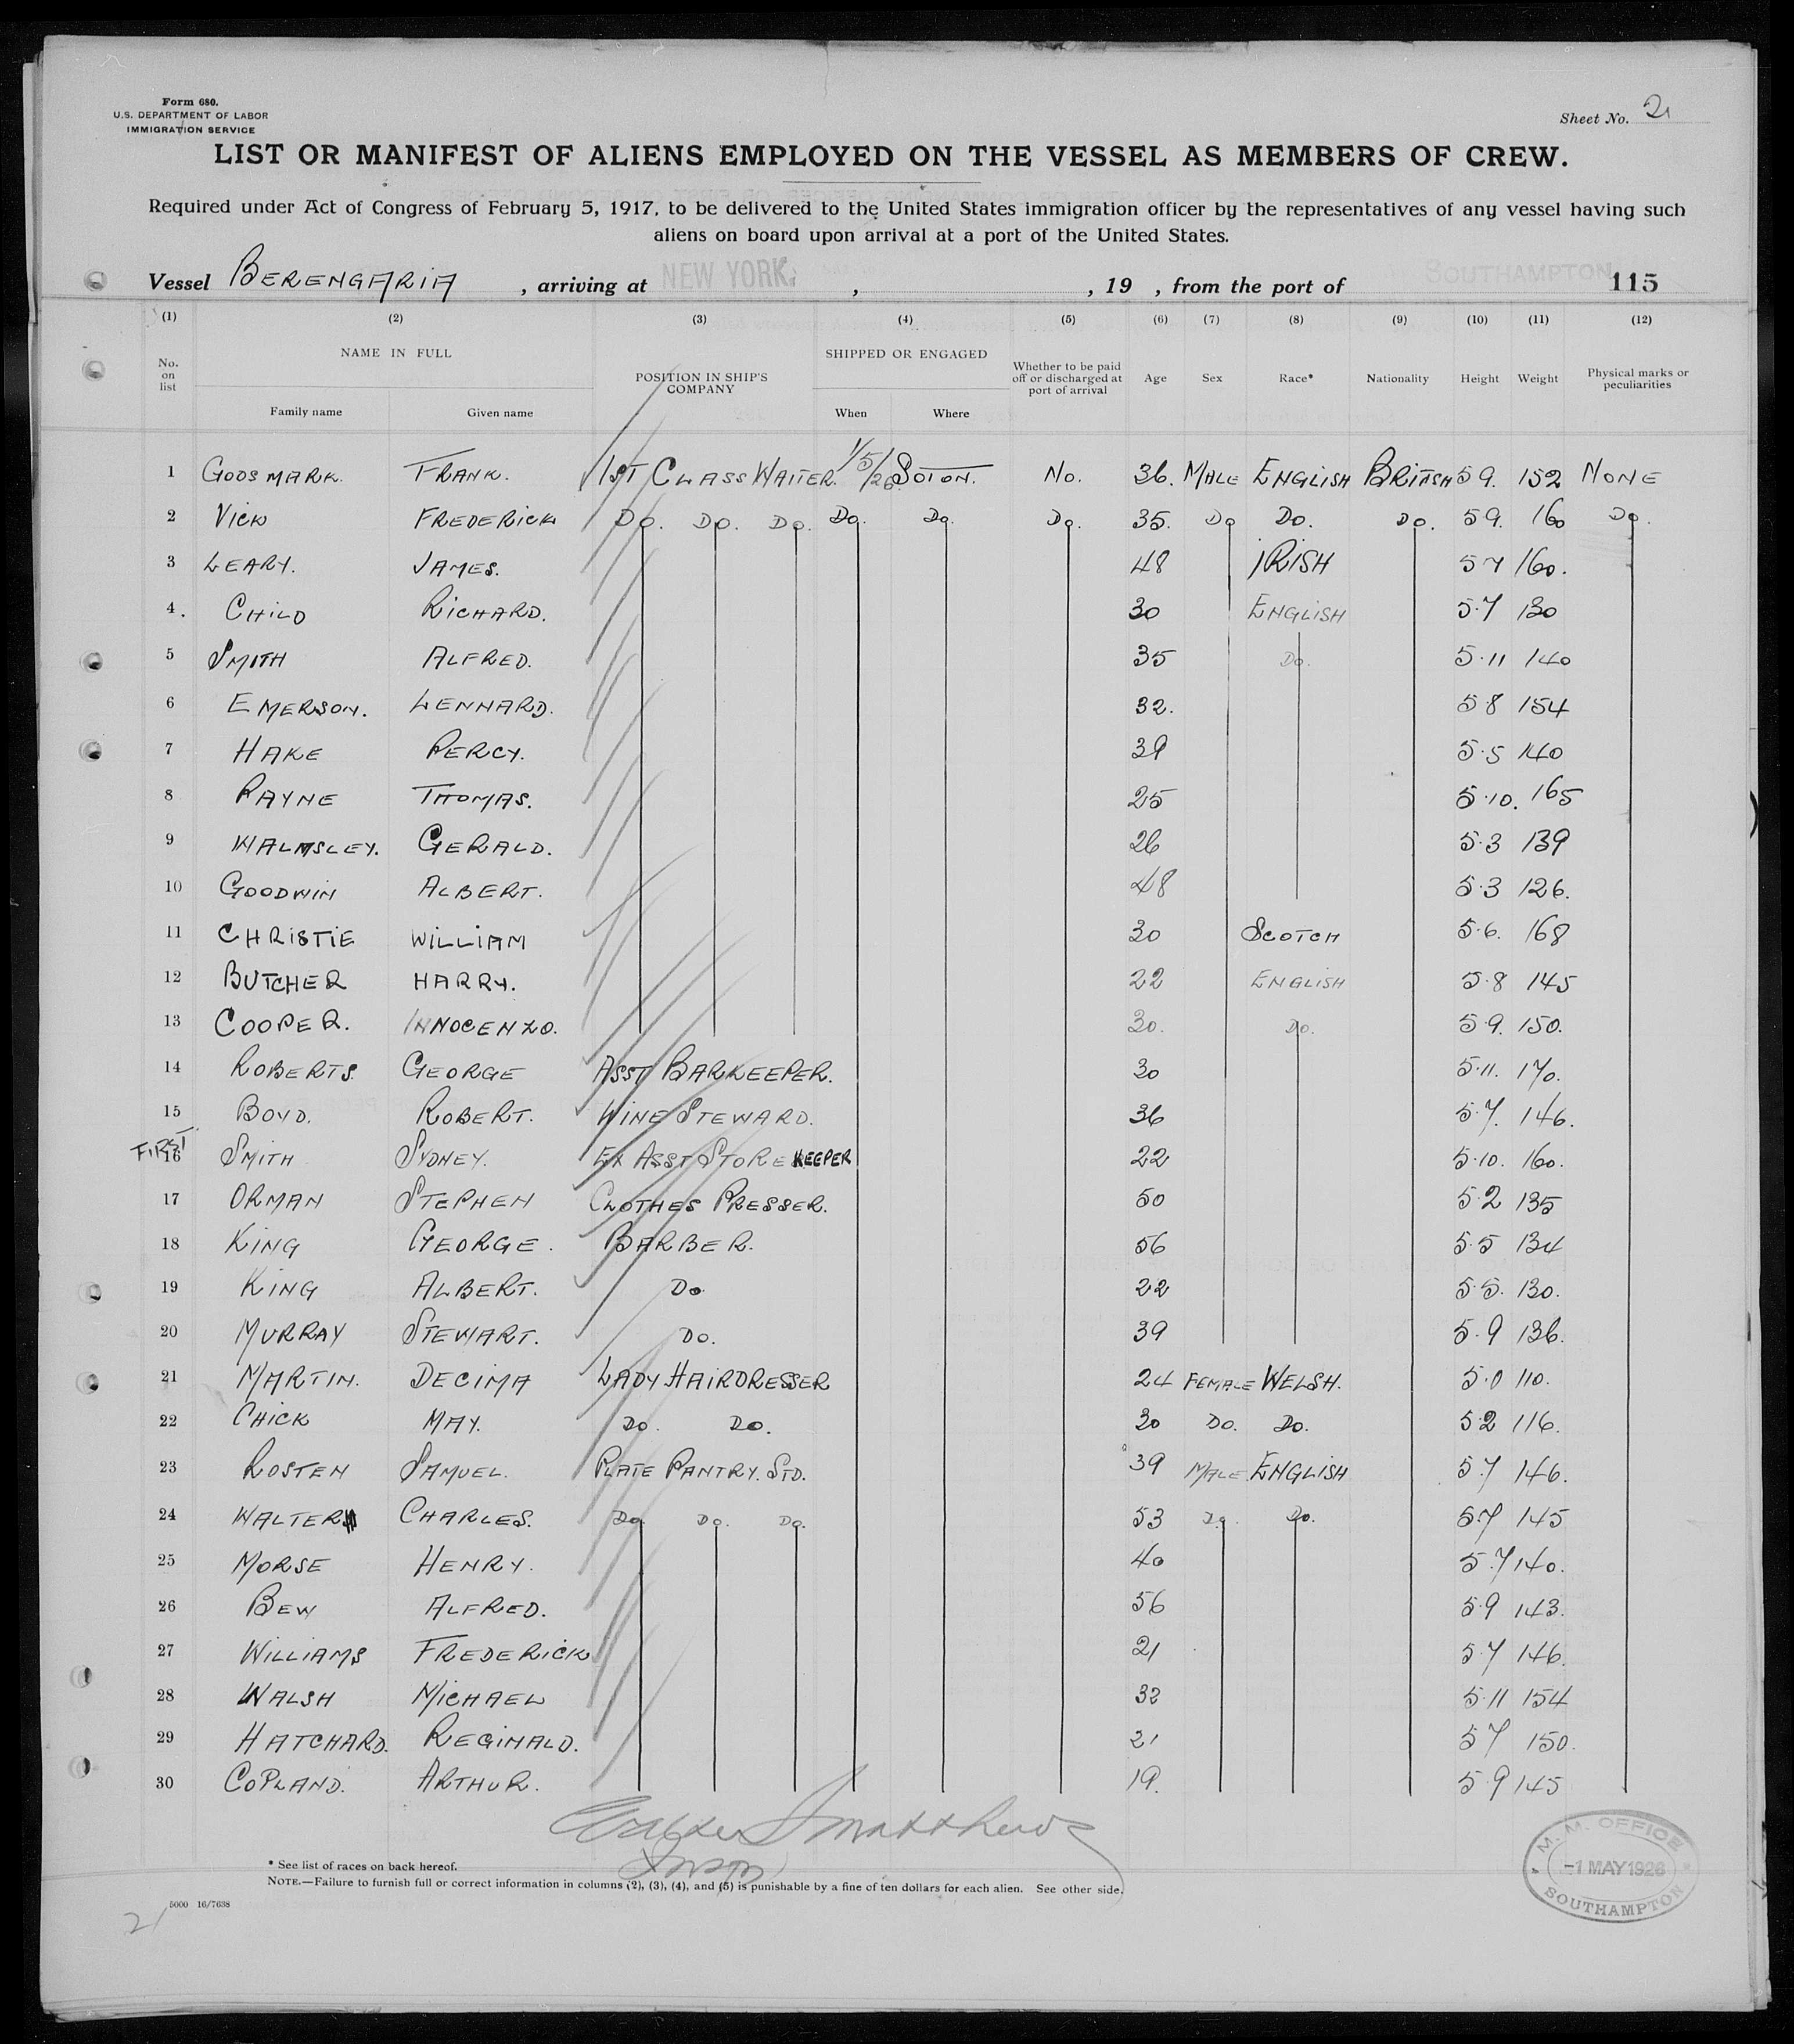 Form 680.
U.S. DEPARTMENT OF LABOR
IMMIGRATION SERVICE
Sheet No. 21
LIST OR MANIFEST OF ALIENS EMPLOYED ON THE VESSEL AS MEMBERS OF CREW.
Required under Act of Congress of February 5, 1917, to be delivered to the United States immigration officer by the representatives of any vessel having such
aliens on board upon arrival at a port of the United States.
Vessel BERENGARIA , arriving at NEW YORK. , , 19 , from the port of SOUTHAMPTON 115
(1) (2) (3) (4) (5) (6) (7) (8) (9) (10) (11) (12)
No. on list NAME IN FULL Family name Given name POSITION IN SHIP'S COMPANY SHIPPED OR ENGAGED When Where Whether to be paid off or discharged at port of arrival Age Sex Race* Nationality Height Weight Physical marks or peculiarities
1 GOOSMARK. FRANK. 1ST CLASS WAITER. 1/5/26 SOTON. No. 36. MALE ENGLISH BRITISH 5 9. 152 NONE
2 VICK FREDERICK DO. DO. DO. DO. DO. DO. 35. DO DO. DO. 5 9. 160 DO.
3 LEARY. JAMES. 48 IRISH 5 7 160.
4. CHILD RICHARD. 30 ENGLISH 5.7 130
5 SMITH ALFRED. 35 DO. 5.11 140
6 EMERSON. LENNARD. 32. 5 8 154
7 HAKE PERCY. 39 5.5 140
8 PAYNE THOMAS. 25 5.10. 165
9 WALMSLEY. GERALD. 26 5.3 139
10 GOODWIN ALBERT. 48 5.3 126.
11 CHRISTIE WILLIAM 30 SCOTCH 5.6. 168
12 BUTCHER HARRY. 22 ENGLISH 5.8 145
13 COOPER. INNOCENZO. 30. DO. 5 9. 150.
14 ROBERTS. GEORGE ASST BARKEEPER. 30 5.11. 170.
15 BOYD. ROBERT. WINE STEWARD. 36 5.7. 146.
FIRST
16 SMITH SYDNEY. EX ASST STOREKEEPER 22 5.10. 160.
17 ORMAN STEPHEN CLOTHES PRESSER. 50 5 2 135
18 KING GEORGE. BARBER. 56 5.5 134
19 KING ALBERT. DO 22 5.5. 130.
20 MURRAY STEWART. DO. 39 5.9 136.
21 MARTIN. DECIMA LADY HAIRDRESSER 24 FEMALE WELSH. 5.0 110.
22 CHICK MAY. DO. DO. 30 DO. DO. 5 2 116.
23 ROSTEN SAMUEL. PLATE PANTRY. STD. 39 MALE ENGLISH 5.7 146.
24 WALTER CHARLES. DO. DO. DO. 53 DO. DO. 5 7 145
25 MORSE HENRY. 40 5.7 140.
26 BEW ALFRED. 56 5.9 143.
27 WILLIAMS FREDERICK 21 5.7 146.
28 WALSH MICHAEL 32 5.11 154
29 HATCHARD. REGINALD. 21 5 7 150.
30 COPLAND. ARTHUR. 19. 5 9 145
Matthews
* See list of races on back hereof.
NOTE.—Failure to furnish full or correct information in columns (2), (3), (4), and (5) is punishable by a fine of ten dollars for each alien. See other side.
5000 16/7638
21
M. M. OFFICE
-1 MAY 1926
SOUTHAMPTON